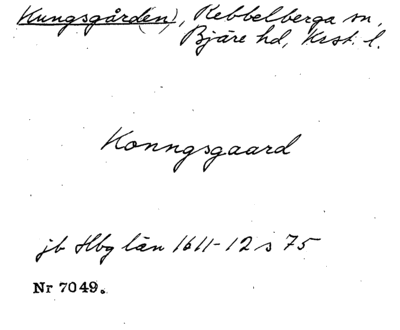 Kungsgård(en), Rebbelberga sn,
Bjäre hd, Krst. l.
Konngsgaard
jb Hbg län 1611-12 s 75
Nr 7049.